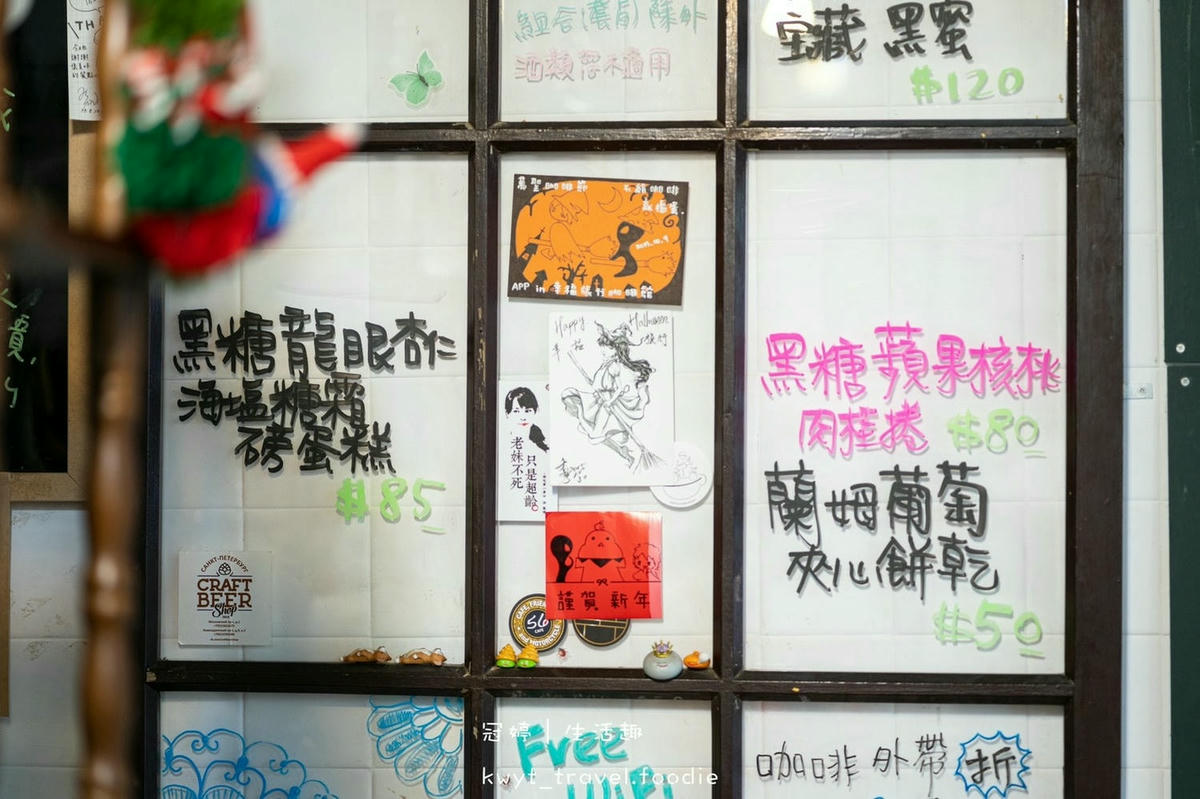 TH
組合(濃厚)除外
酒類恕不適用
宝藏 黑蜜
$120
黑糖龍眼杏仁
海塩糖霜
磅蛋糕
$85
САНКТ-ПЕТЕРБУРГ
CRAFT
BEER
Shop
萬聖咖啡節
APP in 幸福張竹咖啡館
Happy Halloween
只是超齡
老妹不死
謹賀新年
56
CAFE
黑糖蘋果核桃
肉桂捲 $80
蘭姆葡萄
夾心餅乾
$50
Free
WiFi
咖啡外帶 折
冠婷 | 生活趣
kwyt_travel.foodie